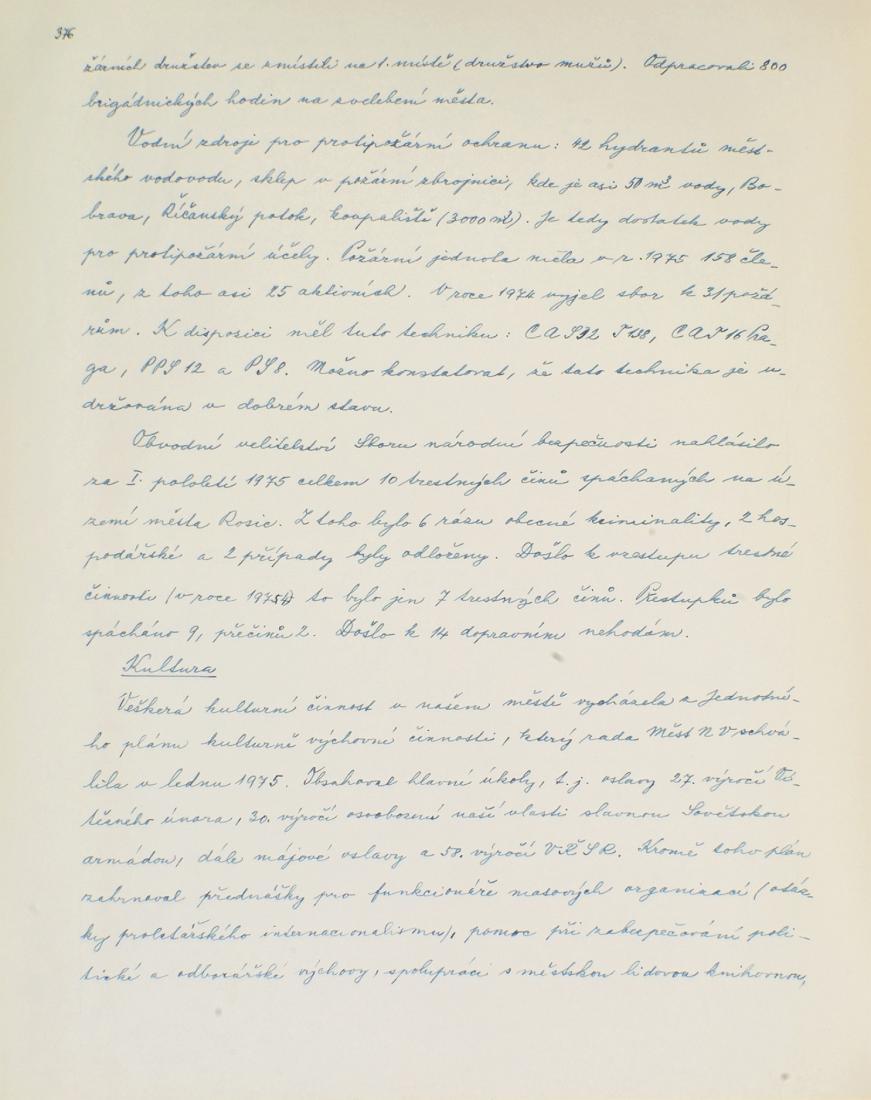 376
žárních družstev se umístili na 1. místě (družstvo mužů). Odpracovali 800
brigádnických hodin na zvelebení města.
Vodní zdroje pro protipožární ochranu: 42 hydrantů měst-
ského vodovodu, sklep v požární zbrojnici, kde je asi 50 m³ vody, Bo-
brava, Říčanský potok, koupaliště (3000 m³). Je tedy dostatek vody
pro protipožární účely. Požární jednota měla v r. 1975 158 čle-
nů, z toho asi 25 aktivních. V roce 1974 vyjel sbor k 31 požá-
rům. K disposici měl tuto techniku: CAS32 T138, CAS 16 Pra-
ga, PPS 12 a PS8. Možno konstatovat, že tato technika je u-
držována v dobrém stavu.
Obvodní velitelství Sboru národní bezpečnosti nahlásilo
za I. pololetí 1975 celkem 10 trestných činů spáchaných na ú-
zemí města Rosic. Z toho bylo 6 rázu obecné kriminality, 2 hos-
podářské a 2 případy byly odloženy. Došlo k vzestupu trestné
činnosti (v roce 1974) to bylo jen 7 trestných činů. Přestupků bylo
spácháno 9, přečinů 2. Došlo k 14 dopravním nehodám.
Kultura
Veškerá kulturní činnost v našem městě vycházela z Jednotné-
ho plánu kulturně výchovné činnosti, který rada MěstNV schvá-
lila v lednu 1975. Obsahoval hlavní úkoly, t. j. oslavy 27. výročí Ví-
tězného února, 30. výročí osvobození naší vlasti slavnou Sovětskou
armádou, dále májové oslavy a 58. výročí VŘSR. Kromě toho plán
zahrnoval přednášky pro funkcionáře masových organizací (otáz-
ky proletářského internacionalismu), pomoc při zabezpečování poli-
tické a odborářské výchovy, spolupráci s městskou lidovou knihovnou,